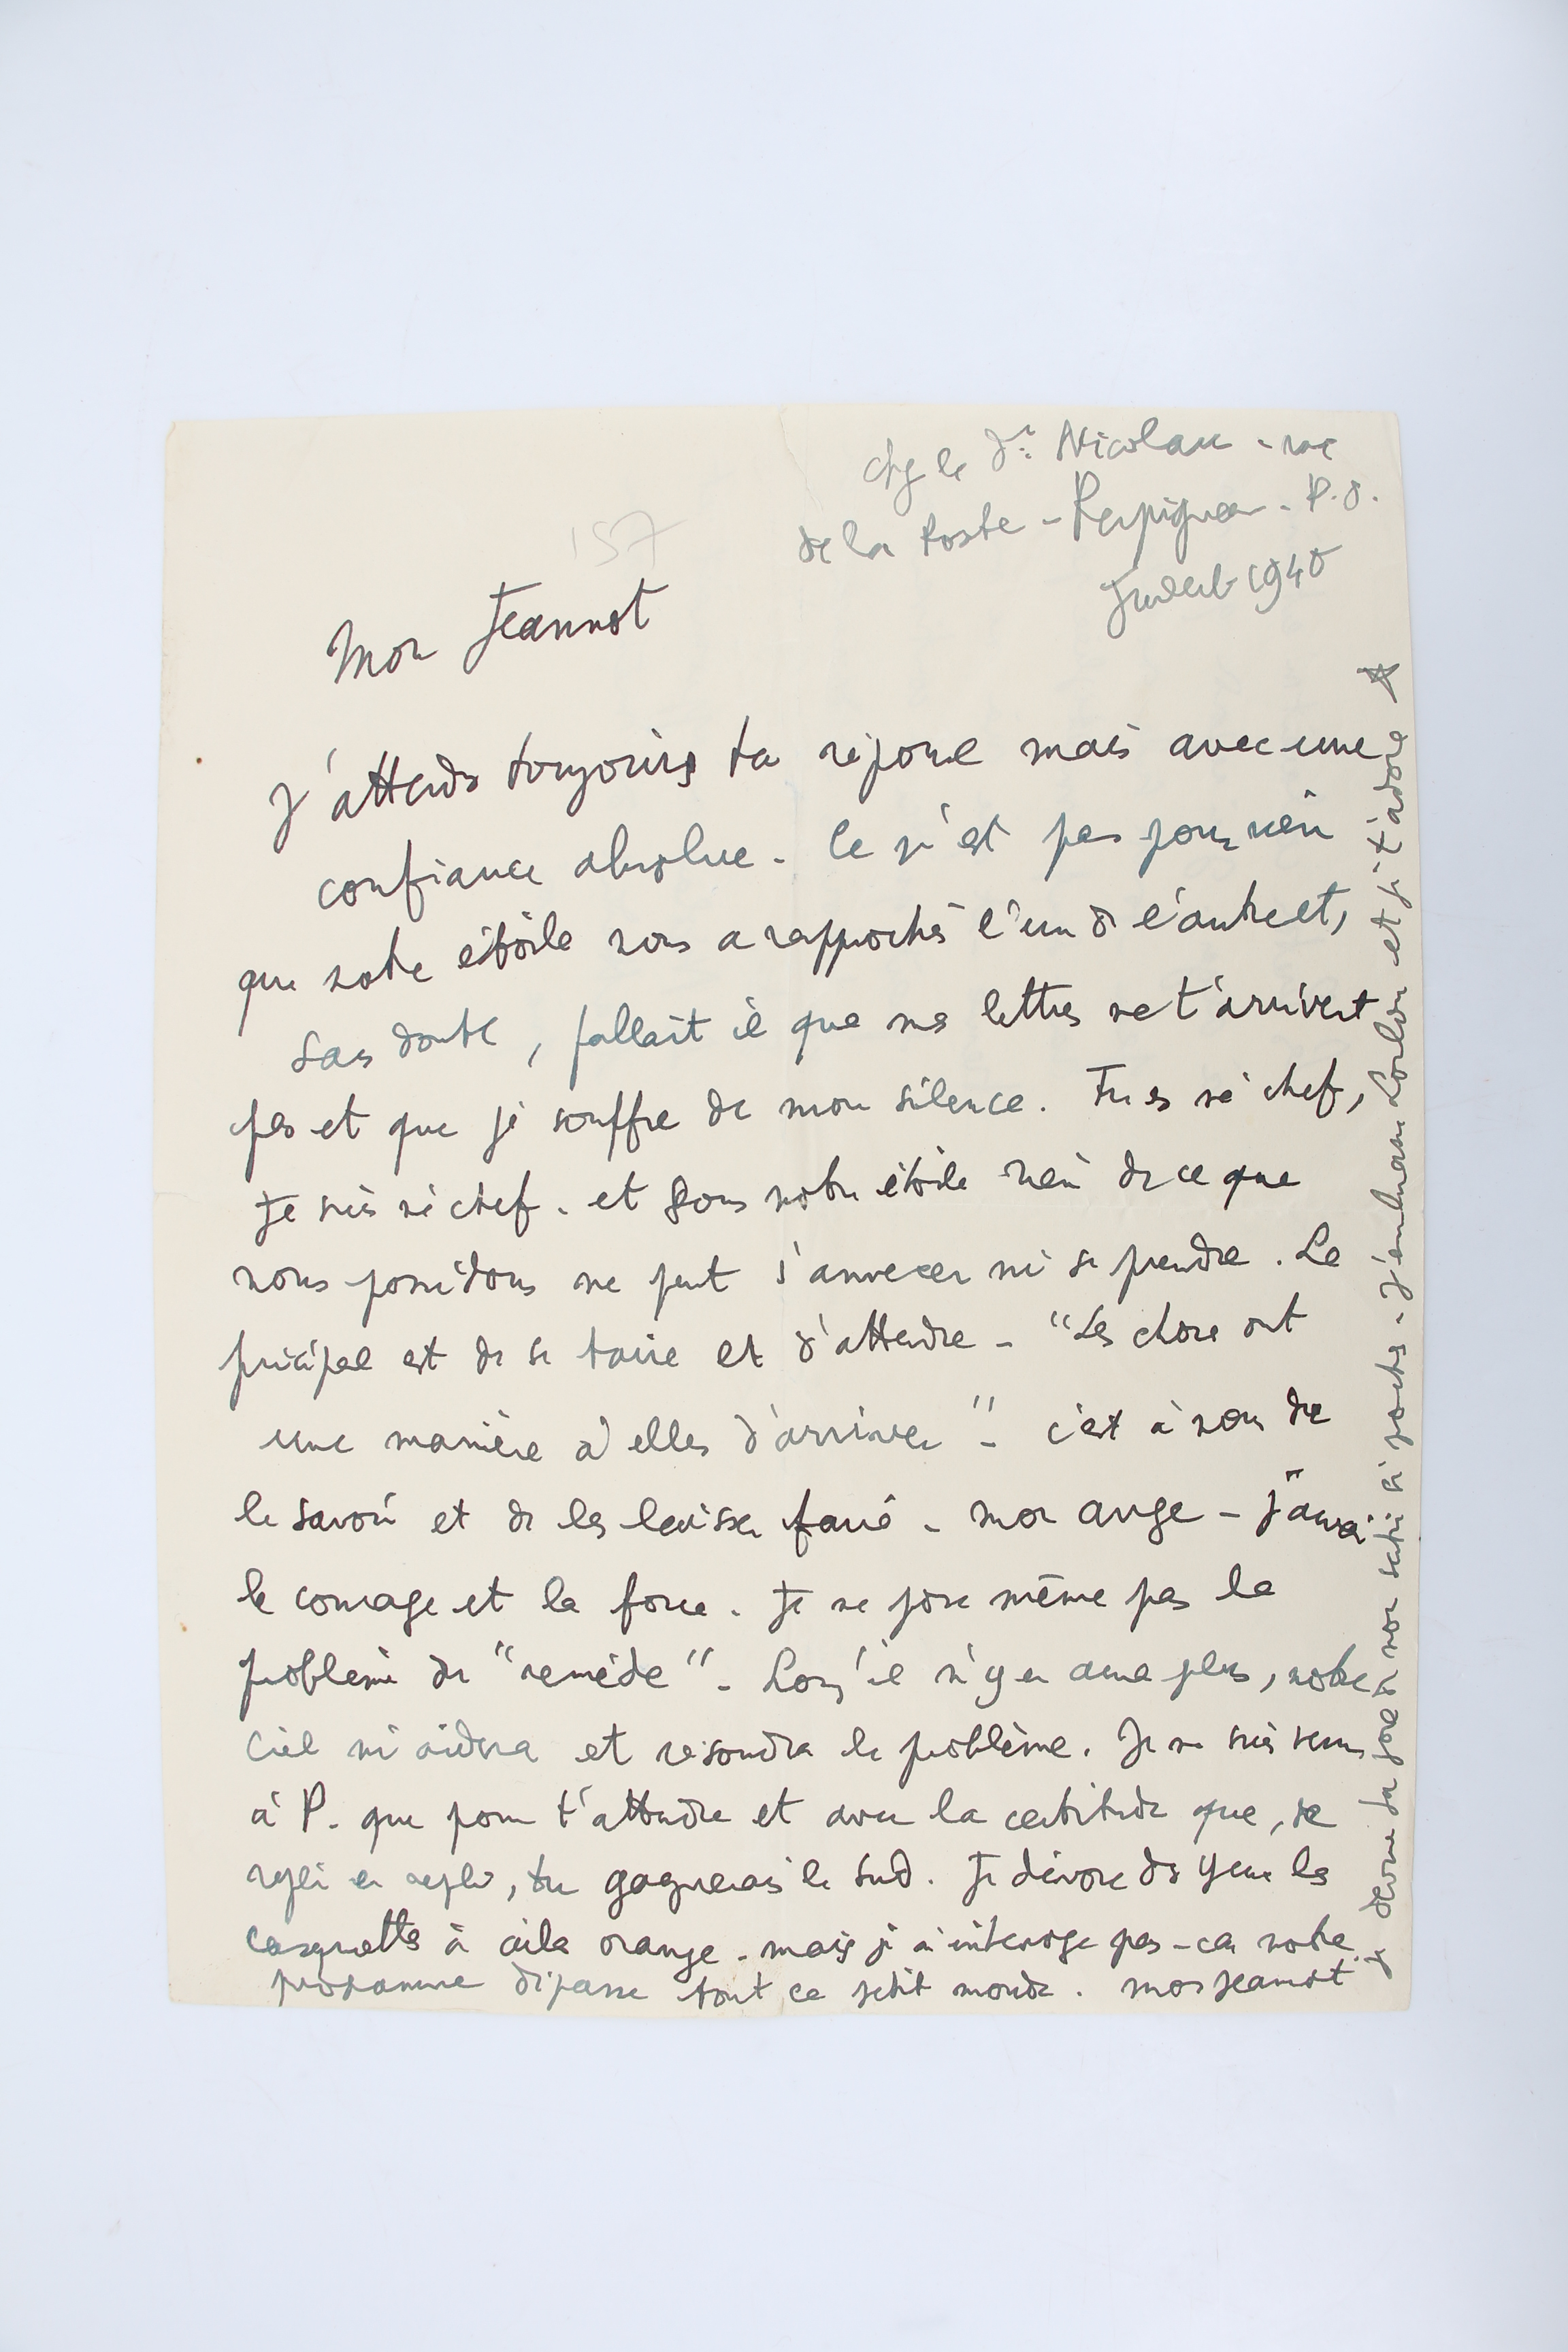 chez le Dr. Nicolau - rue
de la Poste - Perpignan - P.O.
Juillet 1940
157
Mon Jeannot
J'attends toujours ta réponse mais avec une
confiance absolue - Ce n'est pas pour rien
que notre étoile nous a rapprochés l'un de l'autre et,
sans doute, fallait il que mes lettres ne t'arrivent
pas et que je souffre de mon silence. Tu es né chef,
je suis né chef. et sous notre étoile rien de ce que
nous possédons ne peut s'annexer ni se prendre. Le
principal est de se taire et d'attendre - "Les choses ont
une manière à elles d'arriver" - c'est à nous de
le savoir et de les laisser faire - mon ange - j'aurai
le courage et la force. Je ne pose même pas le
problème du "remède" - Lorsqu'il n'y en aura plus, notre
ciel m'aidera et résoudra le problème. Je ne suis venu
à P. que pour t'attendre et avec la certitude que, de
repli en repli, tu gagnerais le sud. Je dévore des yeux les
casquettes à ailes orange - mais je n'interroge pas - car notre
programme dépasse tout ce petit monde. mon Jeannot
je devine ta joie de nos si - j'embrasse et je t'adore